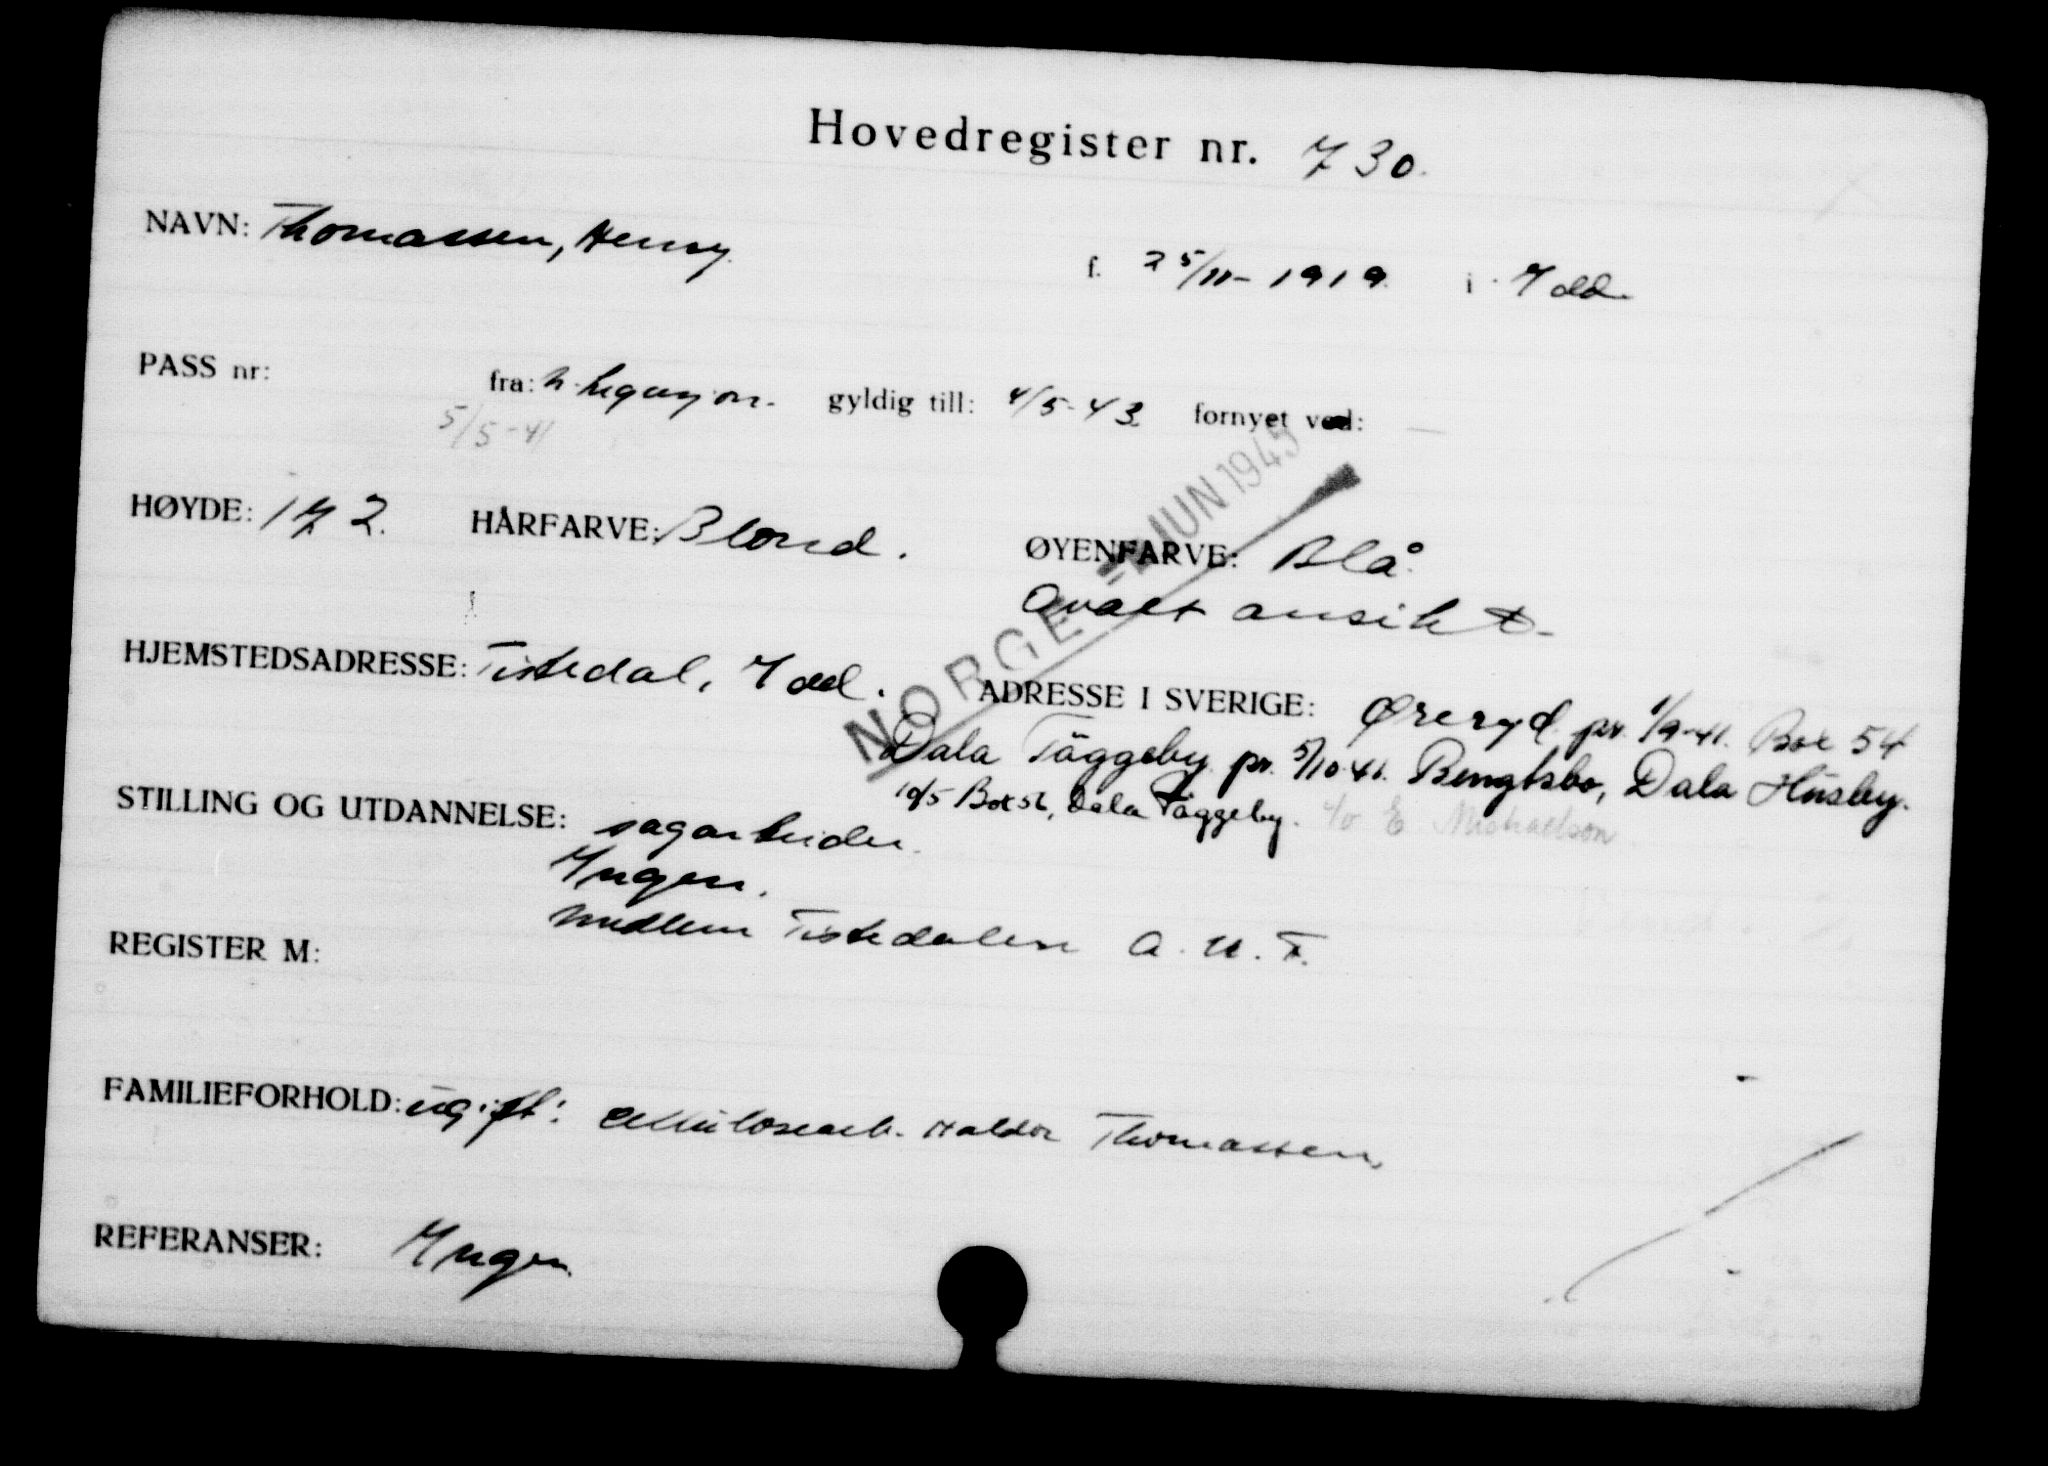 Hovedregister nr. 730.
NAVN: Thomassen, Henry. f. 25/11-1919. i Idd.
PASS nr: fra: n. legasjon. gyldig till: 4/5-43. fornyet ved: —
5/5-41
HØYDE: 172. HÅRFARVE: Blond. ØYENFARVE: Blå.
Ovalt ansikt.
NORGE JUN 1945
HJEMSTEDSADRESSE: Tistedal, Idd. ADRESSE I SVERIGE: Øreryd. pr. 1/9-41. Box 54
Dala Täggeby. pr. 5/10.41. Bengtsbo, Dala Husby.
10/5 Box 56, Dala Täggeby. c/o E Michaelson
STILLING OG UTDANNELSE: sagarbeider.
Ingen.
medlem Tistedalen A.U.F.
REGISTER M:
FAMILIEFORHOLD: ugift: cellulosearb. Haldor Thomassen,
REFERANSER: Ingen.